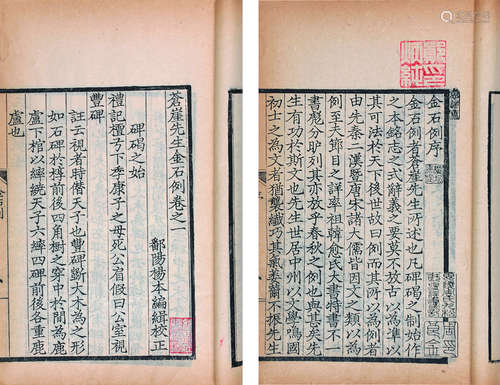 金石例序
金石例者蒼崖先生所述也凡碑碣之制始作
之本銘志之式辭義之要莫不放古以為準以
其可法於天下後世故曰例而其所以為例者
由先秦二漢暨唐宋諸大儒皆因文之類以為
例至夫節目之詳率祖韓愈氏大書特書不一
書彪分昈列其亦放乎春秋之例也與其矣先
生有功於斯文也先生世居中州以文學鳴國
初士之為文者猶襲纖巧其氣萎薾不振先生
蒼崖先生金石例卷之一
鄱陽楊本編輯校正
碑碣之始
禮記檀弓下季康子之母死公肩假曰公室視
豐碑
註云視者時僭天子也豐碑斲大木為之形
如石碑於槨前後四角樹之穿中於間為鹿
盧下棺以繂繞天子六繂四碑前後各重鹿
盧也